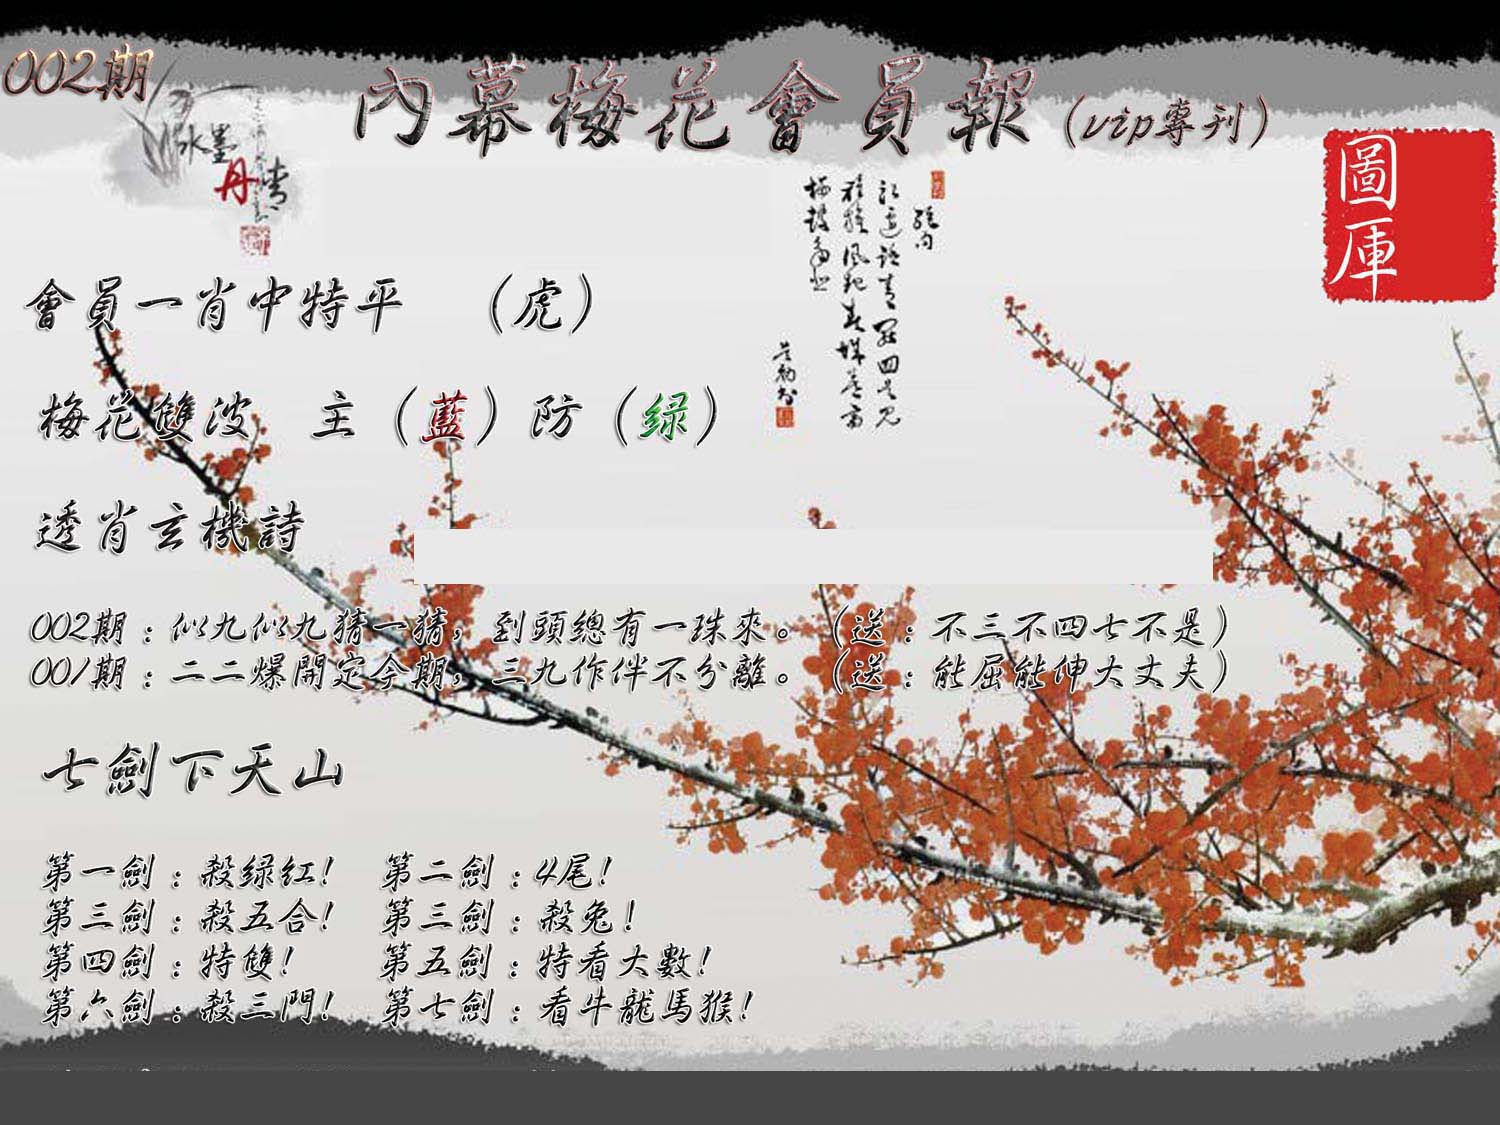 002期
內幕梅花會員報（vip專刊）
水墨
丹青
圖庫
會員一肖中特平　（虎）
梅花雙波　主（藍）防（绿）
透肖玄機詩
002期：似九似九猜一猜，到頭總有一珠來。（送：不三不四七不是）
001期：二二爆開定今期，三九作伴不分離。（送：能屈能伸大丈夫）
七劍下天山
第一劍：殺绿红！　第二劍：4尾！
第三劍：殺五合！　第三劍：殺兔！
第四劍：特雙！　第五劍：特看大數！
第六劍：殺三門！　第七劍：看牛龍馬猴！